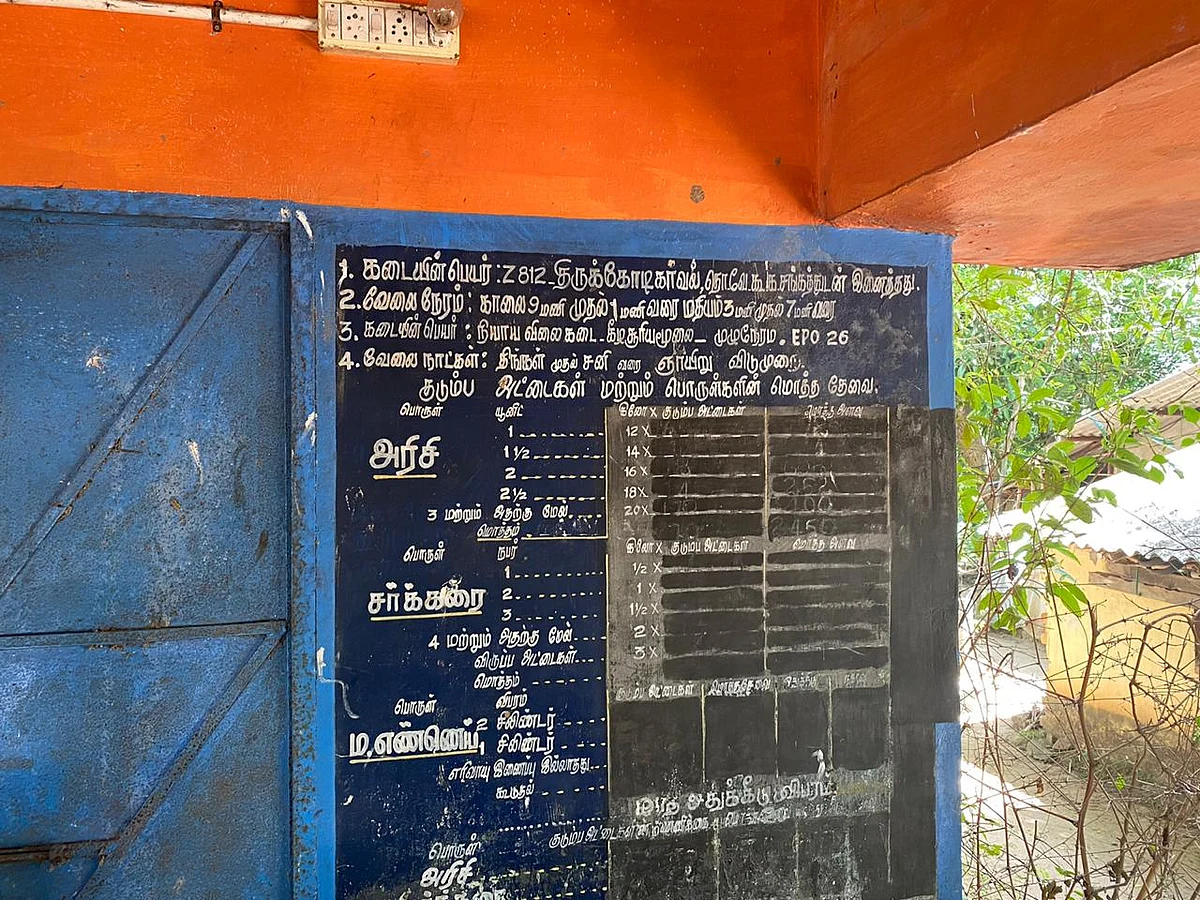 1. கடையின் பெயர் : Z 812 திருக்கோடிகாவல், தொ.வே.கூ.க. சங்கத்துடன் இனைந்தது.
2. வேலை நேரம் : காலை 9 மணி முதல் 1 மணி வரை மதியம் 3 மணி முதல் 7 மணி வரை
3. கடையின் பெயர் : நியாய விலை கடை - கீழசூரியமூலை - முழுநேரம். EPO 26
4. வேலை நாட்கள் : திங்கள் முதல் சனி வரை ஞாயிறு விடுமுறை.
குடும்ப அட்டைகள் மற்றும் பொருள்களின் மொத்த தேவை.
பொருள் யூனிட் கிலோ X குடும்ப அட்டைகள் மொத்த அளவு
அரிசி
1 12 X
1½ 14 X
2 16 X
2½ 18 X
3 மற்றும் அதற்கு மேல் 20 X
மொத்தம்
பொருள் நபர் கிலோ X குடும்ப அட்டைகள் மொத்த அளவு
சர்க்கரை
1 ½ X
2 1 X
3 1½ X
4 மற்றும் அதற்கு மேல் 2 X
விருப்ப அட்டைகள் 3 X
மொத்தம்
பொருள் விபரம் குடும்ப அட்டைகள் மொத்ததேவை
ம,எண்ணெய்
2 சிலிண்டர்
1 சிலிண்டர்
எரிவாயு இணைப்பு இல்லாதது
கூடுதல்
மாத ஒதுக்கீடு விபரம்
குடும்ப அட்டைகளின் எண்ணிக்கை
பொருள்
அரிசி